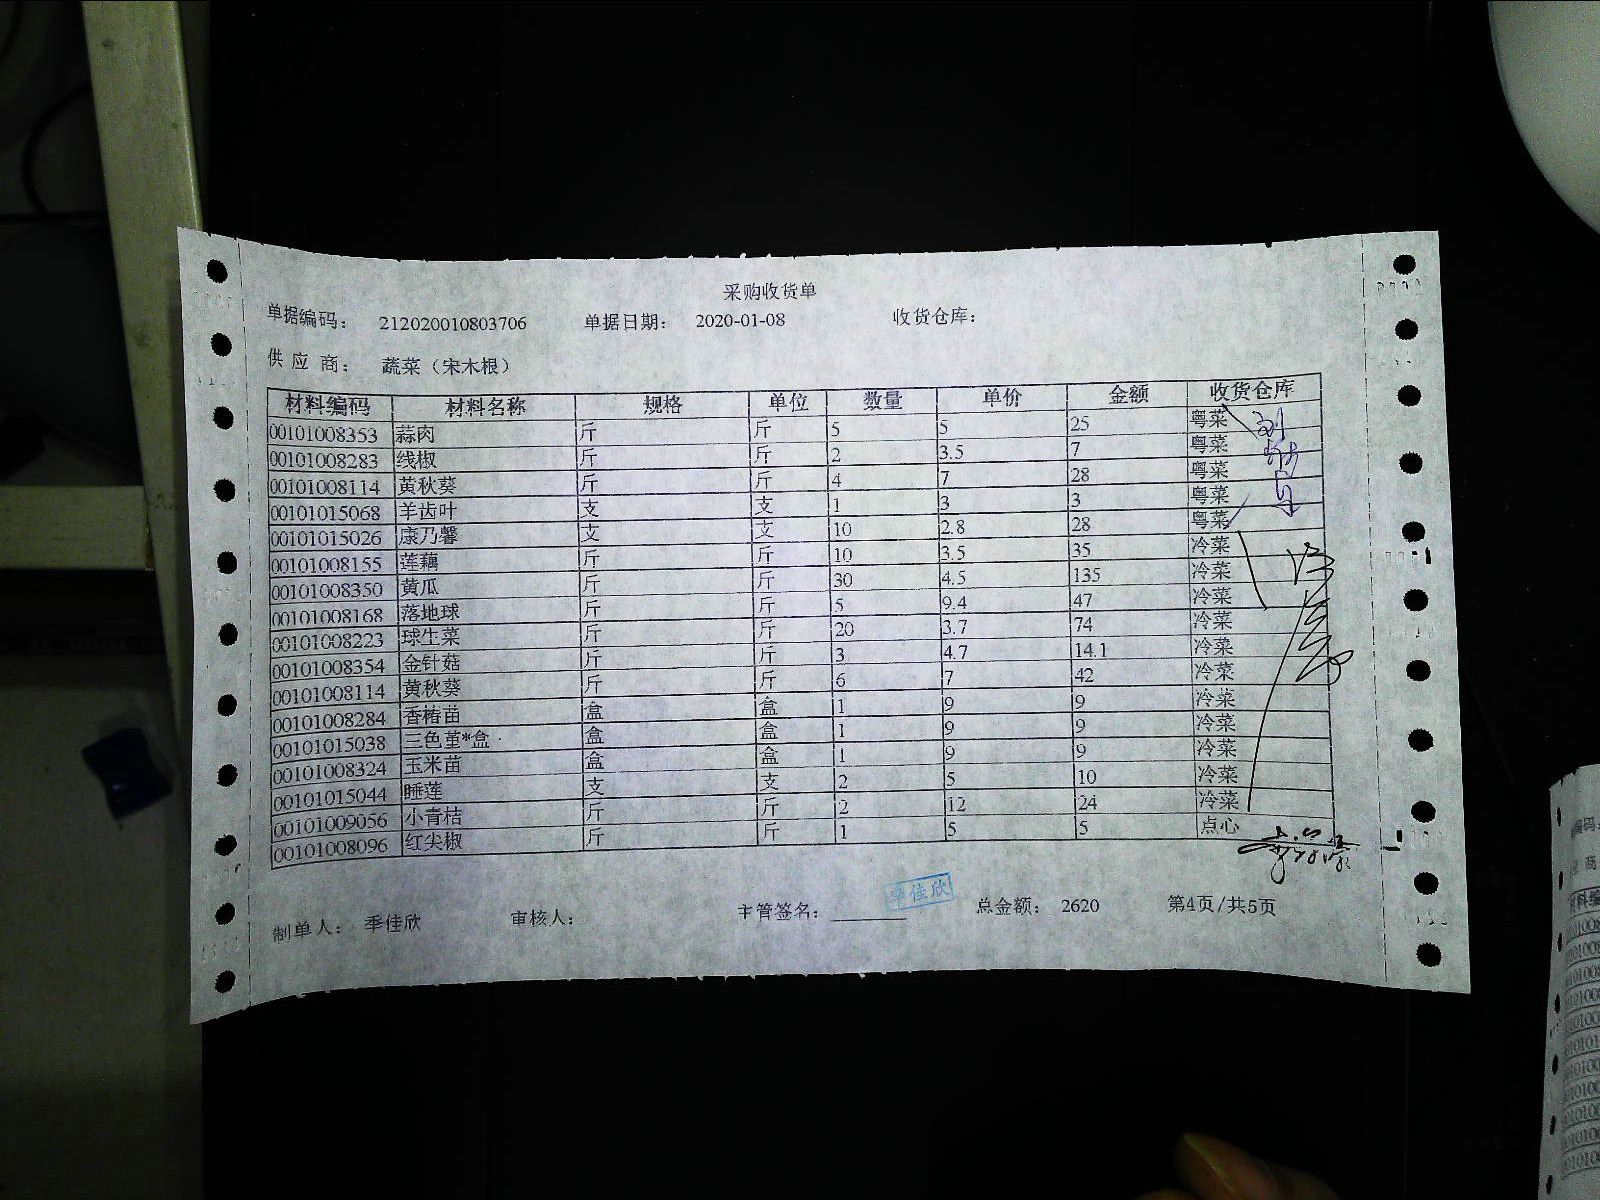 采购收货单
单据编码： 212020010803706 单据日期： 2020-01-08 收货仓库：
供 应 商： 蔬菜（宋木根）
材料编码 材料名称 规格 单位 数量 单价 金额 收货仓库
00101008353 蒜肉 斤 斤 5 5 25 粤菜
00101008283 线椒 斤 斤 2 3.5 7 粤菜
00101008114 黄秋葵 斤 斤 4 7 28 粤菜
00101015068 羊齿叶 支 支 1 3 3 粤菜
00101015026 康乃馨 支 支 10 2.8 28 粤菜
00101008155 莲藕 斤 斤 10 3.5 35 冷菜
00101008350 黄瓜 斤 斤 30 4.5 135 冷菜
00101008168 落地球 斤 斤 5 9.4 47 冷菜
00101008223 球生菜 斤 斤 20 3.7 74 冷菜
00101008354 金针菇 斤 斤 3 4.7 14.1 冷菜
00101008114 黄秋葵 斤 斤 6 7 42 冷菜
00101008284 香椿苗 盒 盒 1 9 9 冷菜
00101015038 三色堇*盒 盒 盒 1 9 9 冷菜
00101008324 玉米苗 盒 盒 1 9 9 冷菜
00101015044 睡莲 支 支 2 5 10 冷菜
00101009056 小青桔 斤 斤 2 12 24 冷菜
00101008096 红尖椒 斤 斤 1 5 5 点心
季佳欣
制单人： 季佳欣 审核人： 主管签名： 总金额： 2620 第4页/共5页